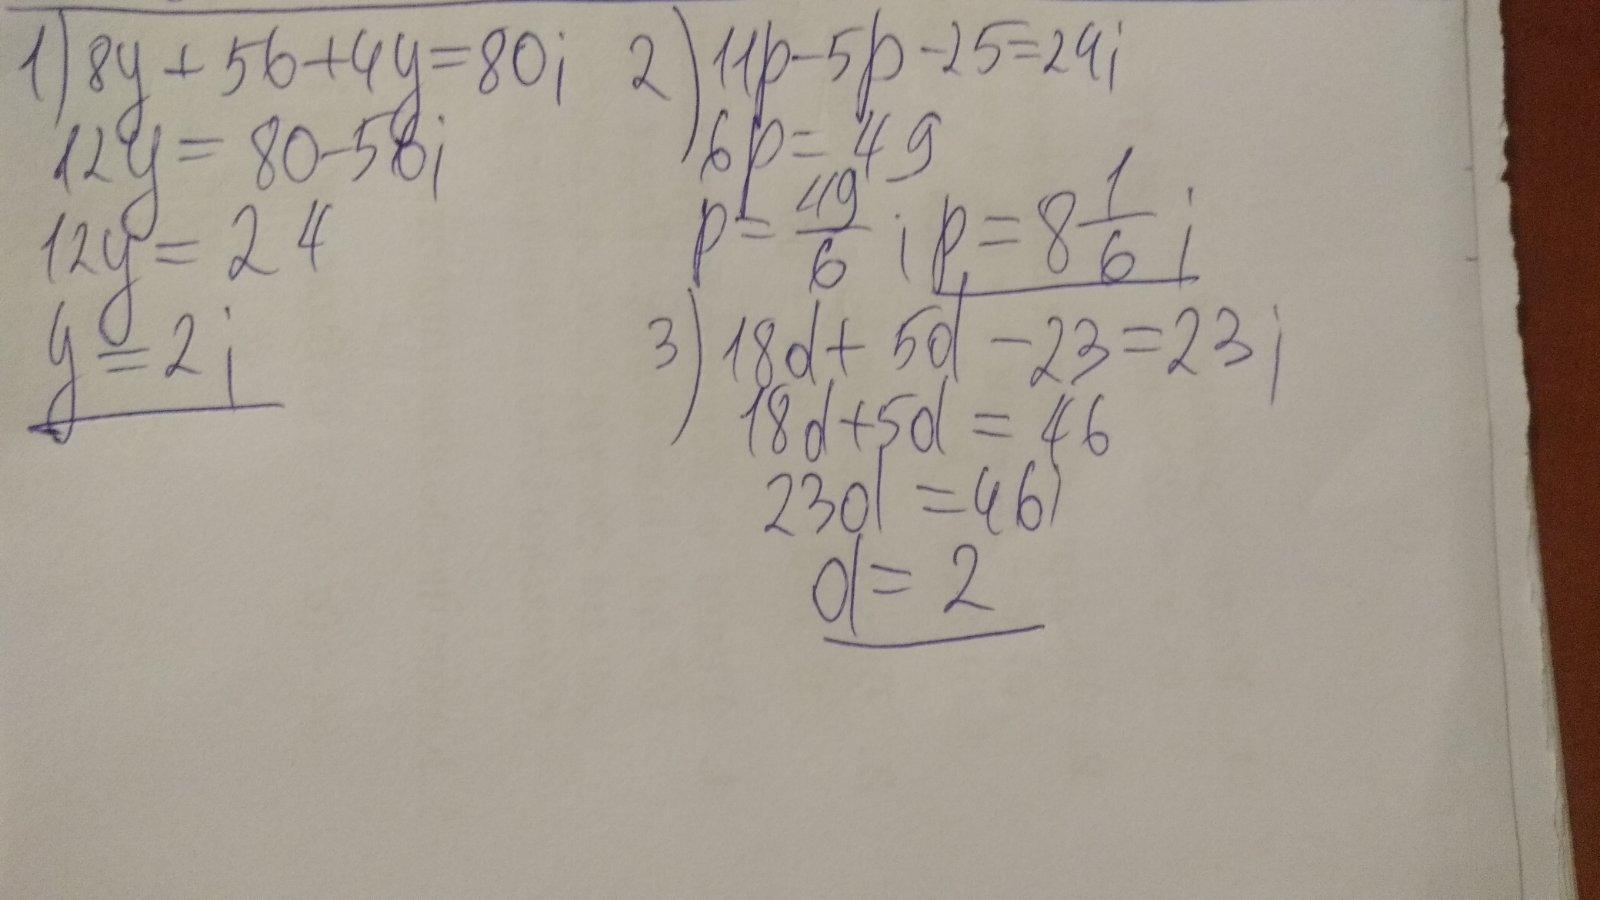 1) 8y + 56 + 4y = 80;
12y = 80 - 56;
12y = 24
y = 2;
2) 11p - 5p - 25 = 24;
6p = 49
p = 49/6; p = 8 1/6;
3) 18d + 5d - 23 = 23;
18d + 5d = 46
23d = 46
d = 2